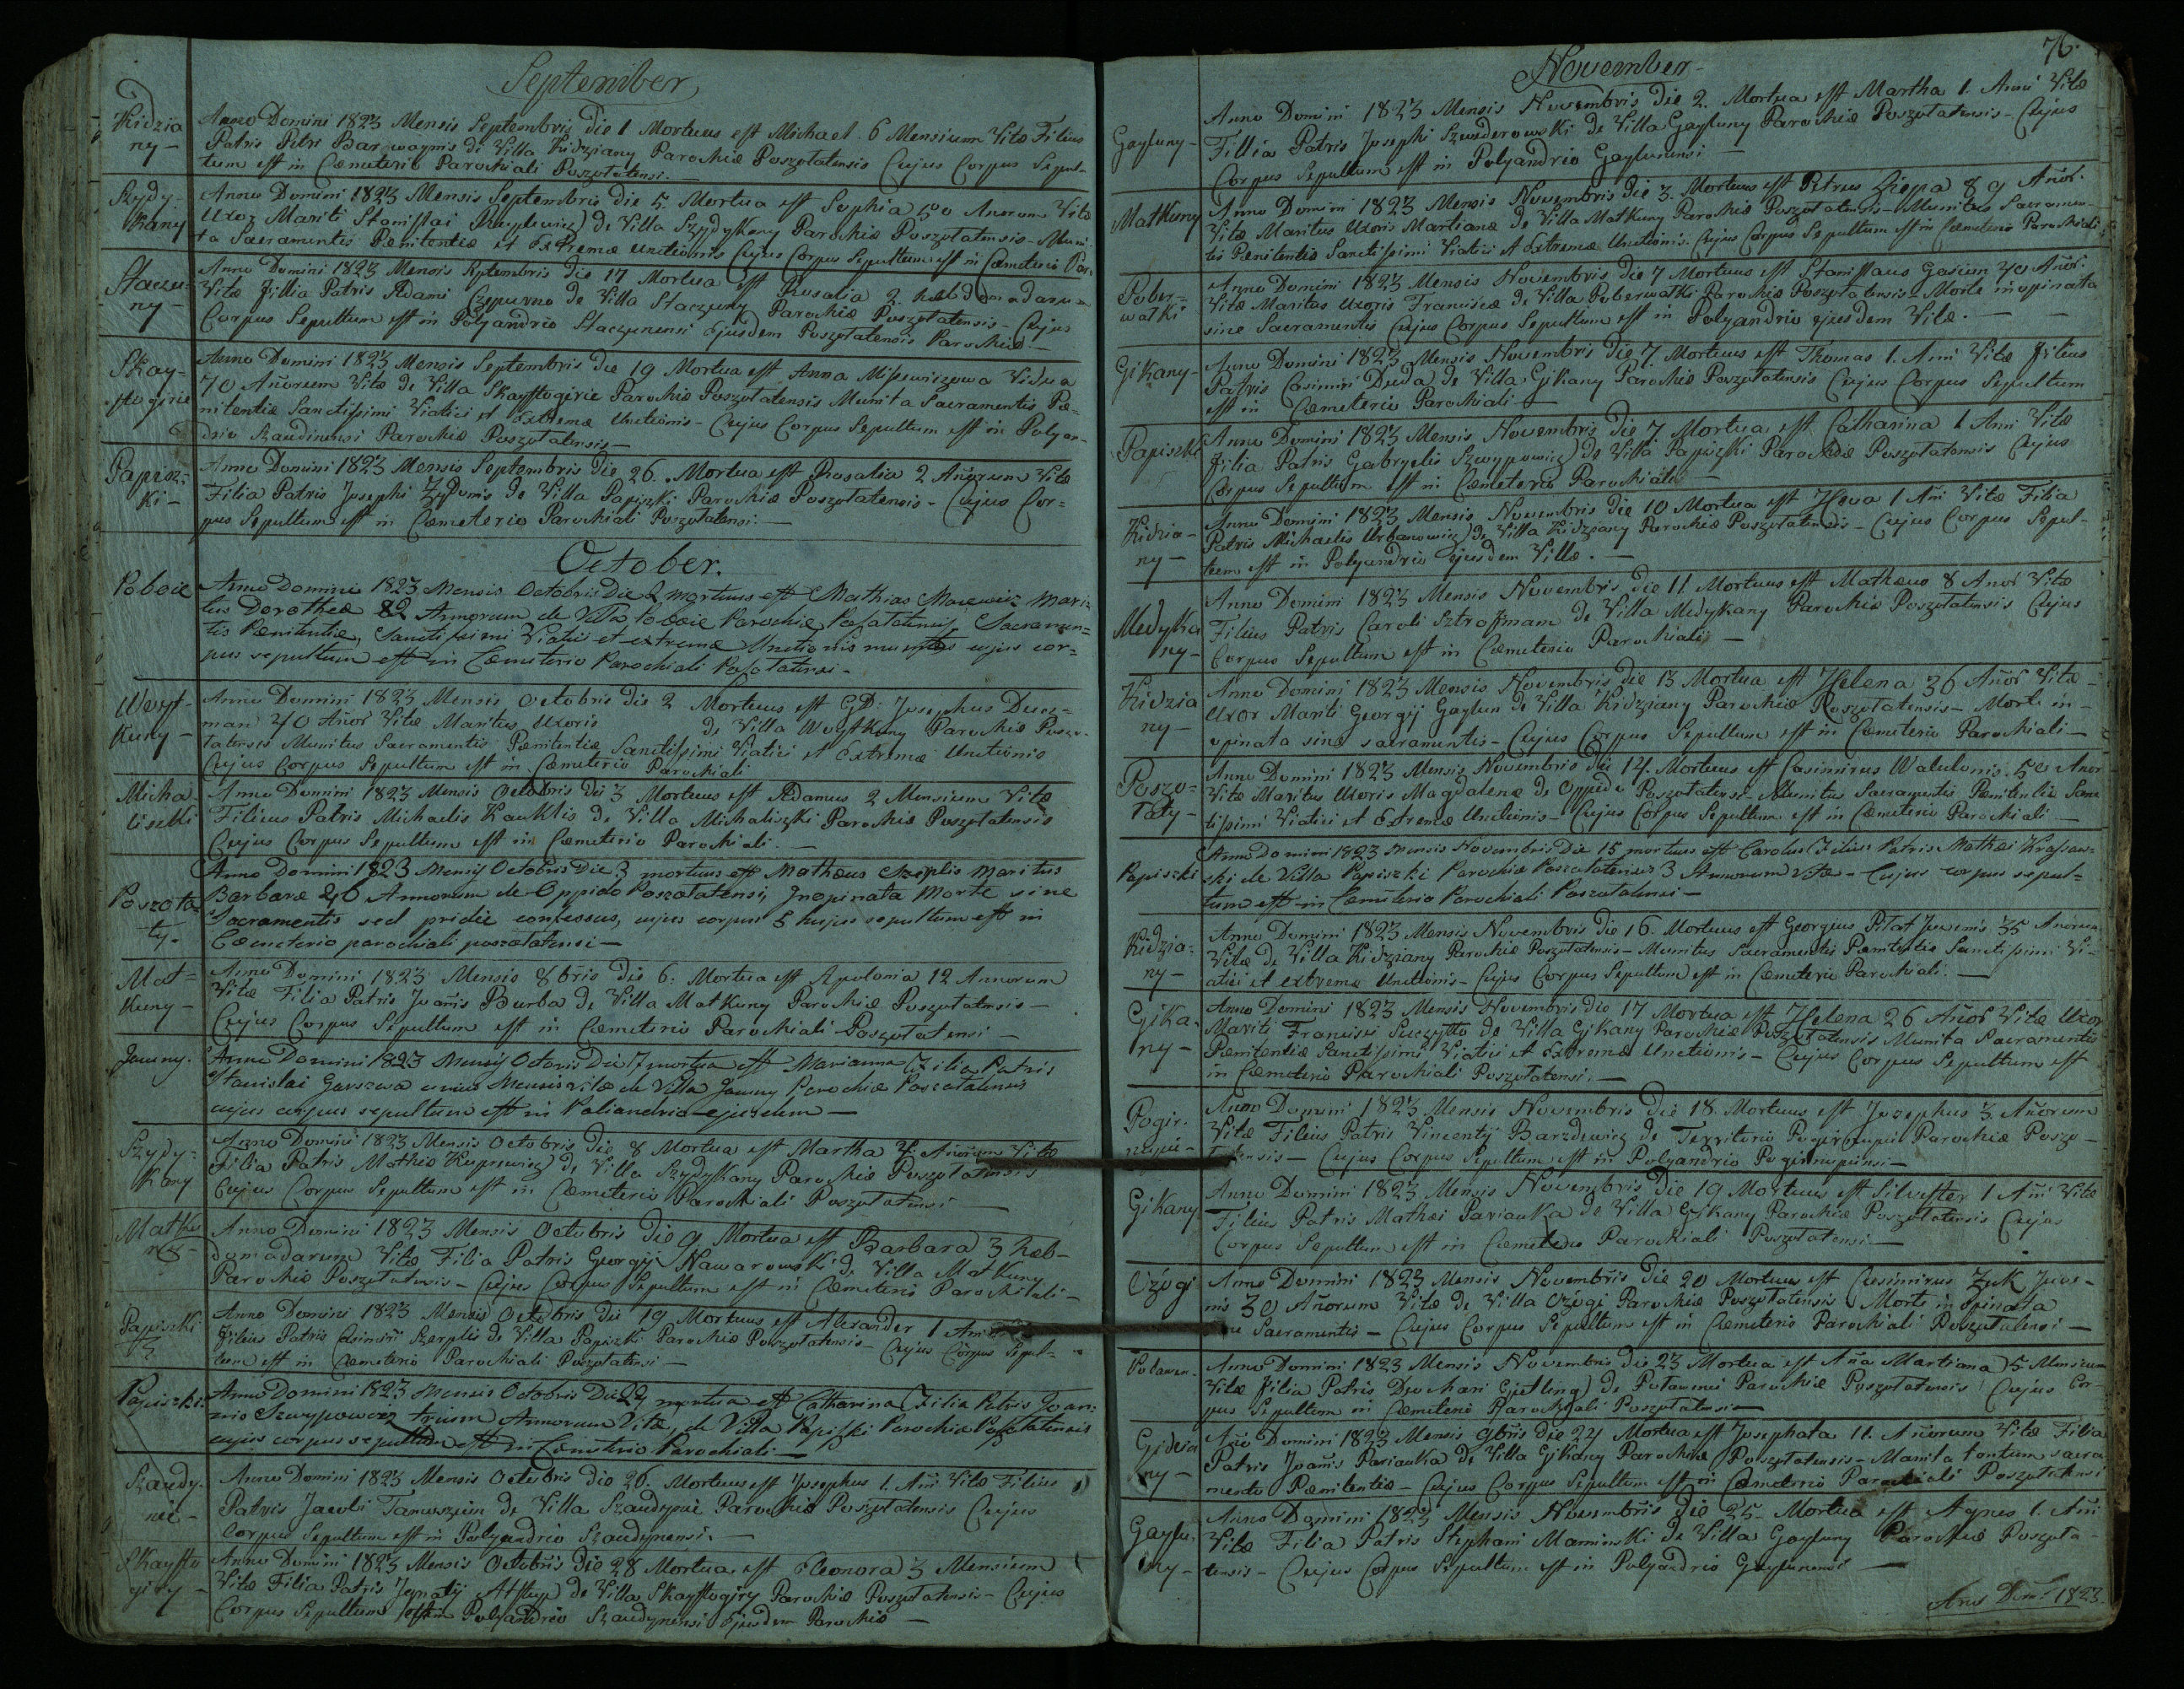 September
Kidzia
ny -
Anno Domini 1823 Mensis Septembris die 1 Mortuus est Michael 6 Mensium Vitæ Filius
Patris Petri Barwaynis de Villa Kidziany Parochiæ Poszołatensis Cujus Corpus Sepul-
tum est in Cæmeterio Parochiali Poszołatensi. -
Szydy-
kany
Anno Domini 1823 Mensis Septembris die 5. Mortua est Sophia 50 Anorum Vitæ
Uxor Mariti Stanislai de Villa Szydykany Parochiæ Poszołatensis - Muni-
ta Sacramentis Pænitentiæ et Extremæ Unctionis Cujus Corpus Sepultum est in Cæmeterio Par.
Staczu-
ny -
Anno Domini 1823 Mensis Septembris die 17 Mortua est Rosalia 2. hebdomadarum
Vitæ Fillia Patris Adami Czepurno de Villa Staczuny Parochiæ Poszołatensis - Cujus
Corpus Sepultum est in Polyandrio Staczunensi Ejusdem Poszołatensis Parochiæ -
Skay-
stogirie
Anno Domini 1823 Mensis Septembris die 19 Mortua est Anna Misewiczowa Vidua
70 Añorum Vitæ de Villa Skaystogirie Parochiæ Poszołatensis Munita Sacramentis Pæ-
nitentiæ Sanctissimi Viatici et Extremæ Unctionis - Cujus Corpus Sepultum est in Polyan-
drio Szaudinensi Parochiæ Poszołatensis -
Papisz-
ki -
Anno Domini 1823 Mensis Septembris die 26. Mortua est Rosalia 2 Añorum Vitæ
Filia Patris Josephi Zydonis de Villa Papiszki Parochiæ Poszołatensis - Cujus Cor-
pus Sepultum est in Cæmeterio Parochiali Poszołatensi. -
October.
Poboie
Anno Domini 1823 Mensis Octobris Die 2 mortuus est Mathias Macewicz Mari-
tus Dorotheæ 82 Annorum de Villa Poboie Parochiæ Posołatensis, Sacramen=
tis Pænitentiæ, Sanctissimi Viatici et extremæ Unctionis munitus cujus cor=
pus sepultum est in Cæmeterio Parochiali Posołatensi -
Woyt-
kuny -
Anno Domini 1823 Mensis Octobris die 2 Mortuus est G.D. Josephus Duci=
man 40 Añor Vitæ Maritus Uxoris de Villa Woytkuny Parochiæ Poszo-
łatensis Munitus Sacramentis Pænitentiæ Sanctissimi Viatici et Extremæ Unctionis
Cujus Corpus Sepultum est in Cæmeterio Parochiali
Micha
liszki
Anno Domini 1823 Mensis Octobris die 3 Mortuus est Adamus 2 Mensium Vitæ
Filius Patris Michaelis Kauklis de Villa Michaliszki Parochiæ Poszołatensis
Cujus Corpus Sepultum est in Cæmeterio Parochiali. -
Poszoła
ty.
Anno Domini 1823 Mensis Octobris Die 3 mortuus est Mathæus Czeplis Maritus
Barbaræ 26 Annorum de Oppido Poszołatensi, Inopinata Morte sine
Sacramentis sed pridie confessus, cujus corpus 5 hujus sepultum est in
Cæmeterio parochiali poszołatensi -
Mat=
kuny -
Anno Domini 1823 Mensis 8bris die 6. Mortua est Apolonia 12 Annorum
Vitæ Filia Patris Joañis Burba de Villa Matkuny Parochiæ Poszołatensis -
Cujus Corpus Sepultum est in Cæmeterio Parochiali Poszołatensi -
Jawny.
Anno Domini 1823 Mensis Octobris Die 7 mortua est Marianna Filia Patris
Stanislai Garszwa unius Mensis vitæ de Villa Jawny Parochiæ Poszołatensis
cujus corpus sepultum est in Poliandrio ejusdem -
Szydy-
kany
Anno Domini 1823 Mensis Octobris die 8 Mortua est Martha 4 Añorum Vitæ
Filia Patris Mathiæ Kuprewicz de Villa Szydykany Parochiæ Poszołatensis
Cujus Corpus Sepultum est in Cæmeterio Parochiali Poszołatensi -
Matku
ny -
Anno Domini 1823 Mensis Octobris die 9 Mortua est Barbara 3 heb-
domadarum Vitæ Filia Patris Georgij Nawarowski de Villa Matkuny
Parochiæ Poszołatensis - Cujus Corpus Sepultum est in Cæmeterio Parochiali -
Papiszki
Anno Domini 1823 Mensis Octobris die 19 Mortuus est Alexander 1
Filius Patris Casimiri Szerplis de Villa Papiszki Parochiæ Poszołatensis - Cujus Corpus Sepul-
tum est in Cæmeterio Parochiali Poszołatensi -
Papiszki
Anno Domini 1823 Mensis Octobris Die 24 mortua est Catharina Filia Patris Joan-
nis Szwypowicz trium Annorum Vitæ, de Villa Papiszki Parochiæ Poszołatensis
cujus corpus sepultum est in Cæmeterio Parochiali -
Szaudy-
nie -
Anno Domini 1823 Mensis Octobris die 26. Mortuus est Josephus 1. Añi Vitæ Filius
Patris Jacobi Tamuszun de Villa Szaudynie Parochiæ Poszołatensis Cujus
Corpus Sepultum est in Polyandrio Szaudynensi. -
Skaysto
giry -
Anno Domini 1823 Mensis Octobris die 28 Mortua est Eleonora 3 Mensium
Vitæ Filia Patris Ignatij de Villa Skaystogiry Parochiæ Poszołatensis - Cujus
Corpus Sepultum est in Polyandrio Szaudynensi Ejusdem Parochiæ -
76.
November -
Gayluny -
Anno Domini 1823 Mensis Novembris die 2. Mortua est Martha 1. Anni Vitæ
Fillia Patris Josephi Szwederowski de Villa Gayluny Parochiæ Poszołatensis - Cujus
Corpus Sepultum est in Polyandrio Gaylunensi -
Matkuny
Anno Domini 1823 Mensis Novembris die 3. Mortuus est Petrus Liepa 89 Añor.
Vitæ Maritus Uxoris Martianæ de Villa Matkuny Parochiæ Poszołatensis - Munitus Sacramen-
tis Pænitentiæ Sanctissimi Viatici et Extremæ Unctionis. Cujus Corpus Sepultum est in Cæmeterio Parochiali
Pober-
watki
Anno Domini 1823 Mensis Novembris die 7 Mortuus est Stanislaus Gasiun 70 Añor.
Vitæ Maritus Uxoris Franciscæ de Villa Poberwatki Parochiæ Poszołatensis - Morte inopinata
sine Sacramentis Cujus Corpus Sepultum est in Polyandrio ejusdem Vilæ. -
Gikany -
Anno Domini 1823 Mensis Novembris die 7. Mortuus est Thomas 1. Anni Vitæ Filius
Patris Casimiri Duda de Villa Gikany Parochiæ Poszołatensis Cujus Corpus Sepultum
est in Cæmeterio Parochiali -
Papiszki
Anno Domini 1823 Mensis Novembris die 7 Mortua est Catharina 1 Anni Vitæ
Filia Patris Gabryelis Szwypowicz de Villa Papiszki Parochiæ Poszołatensis Cujus
Corpus Sepultum est in Cæmeterio Parochiali -
Kidzia-
ny -
Anno Domini 1823 Mensis Novembris die 10 Mortua est Heva 1 Añi Vitæ Filia
Patris Michaelis Urbanowicz de Villa Kidziany Parochiæ Poszołatensis - Cujus Corpus Sepul-
tum est in Polyandrio Ejusdem Villæ. -
Medyka
ny -
Anno Domini 1823 Mensis Novembris die 11 Mortuus est Mathæus 8 Anor Vitæ
Filius Patris Caroli Sztrofman de Villa Medykany Parochiæ Poszołatensis Cujus
Corpus Sepultum est in Cæmeterio Parochiali -
Kidzia
ny -
Anno Domini 1823 Mensis Novembris die 13 Mortua est Helena 36 Añor Vitæ -
Uxor Mariti Georgij Gaylun de Villa Kidziany Parochiæ Poszołatensis - Morte in-
opinata sine sacramentis - Cujus Corpus Sepultum est in Cæmeterio Parochiali -
Poszo-
łaty -
Anno Domini 1823 Mensis Novembris die 14. Mortuus est Casimirus Walulonis 50 Anor
Vitæ Maritus Uxoris Magdalenæ de Oppido Poszołatensi - Munitus Sacramentis Pænitentiæ Sanc
tissimi Viatici et Extremæ Unctionis - Cujus Corpus Sepultum est in Cæmeterio Parochiali -
Papiszki
Anno Domini 1823 Mensis Novembris Die 15 mortuus est Carolus Filius Patris Mathæi Krassow-
ski de Villa Papiszki Parochiæ Poszołatensis 3 Annorum vitæ - Cujus corpus sepul=
tum est in Cæmeterio Parochiali Poszołatensi -
Kidzia-
ny -
Anno Domini 1823 Mensis Novembris die 16. Mortuus est Georgius Piłat Juvenis 35 Añorum
Vitæ de Villa Kidziany Parochiæ Poszołatensis - Munitus Sacramentis Pænitentiæ Sanctissimi Vi-
atici et extremæ Unctionis - Cujus Corpus Sepultum est in Cæmeterio Parochiali. -
Gika-
ny -
Anno Domini 1823 Mensis Novembris die 17 Mortua est Helena 26 Añor Vitæ Uxor
Mariti Francisci de Villa Gikany Parochiæ Poszołatensis Munita Sacramentis
Pænitentiæ Sanctissimi Viatici et Extremæ Unctionis - Cujus Corpus Sepultum est
in Cæmeterio Parochiali Poszołatensi. -
Pogir-
Anno Domini 1823 Mensis Novembris die 18. Mortuus est Josephus 3 Añorum
Vitæ Filius Patris Vincentij Barzdewicz de Territorio Parochiæ Poszo-
łatensis - Cujus Corpus Sepultum est in Polyandrio
Gikany
Anno Domini 1823 Mensis Novembris die 19 Mortuus est Silvester 1 Añi Vitæ
Filius Patris Mathæi Parianka de Villa Gikany Parochiæ Poszołatensis Cujus
Corpus Sepultum est in Cæmeterio Parochiali Poszołatensi -
Ożogi
Anno Domini 1823 Mensis Novembris die 20 Mortuus est Casimirus Żuk Juve-
nis 30 Añorum Vitæ de Villa Ożogi Parochiæ Poszołatensis Morte inopinata
Sacramentis - Cujus Corpus Sepultum est in Cæmeterio Parochiali Poszołatensi -
Poławen-
Anno Domini 1823 Mensis Novembris die 23 Mortua est Aña Martiana 5. Mensium
Vitæ Filia Patris Gietling de Parochiæ Poszołatensis Cujus Cor-
pus Sepultum in Cæmeterio Parochiali Poszołatensi -
ny -
Año Domini 1823 Mensis 9bris die 24 Mortua est Josephata 11. Añorum Vitæ Filia
Patris Joañis Parianka de Villa Gikany Parochiæ Poszołatensis - Munita tantum sacra
mento Pænitentiæ - Cujus Corpus Sepultum est in Cæmeterio Parochiali Poszołatensi
Gaylu-
ny -
Anno Domini 1823 Mensis Novembris die 25. Mortua est Agnes 1. Añi
Vitæ Filia Patris Stephani Maminski de Villa Gayluny Parochiæ Poszoła-
tensis - Cujus Corpus Sepultum est in Polyandrio Gaylunensi -
1823.